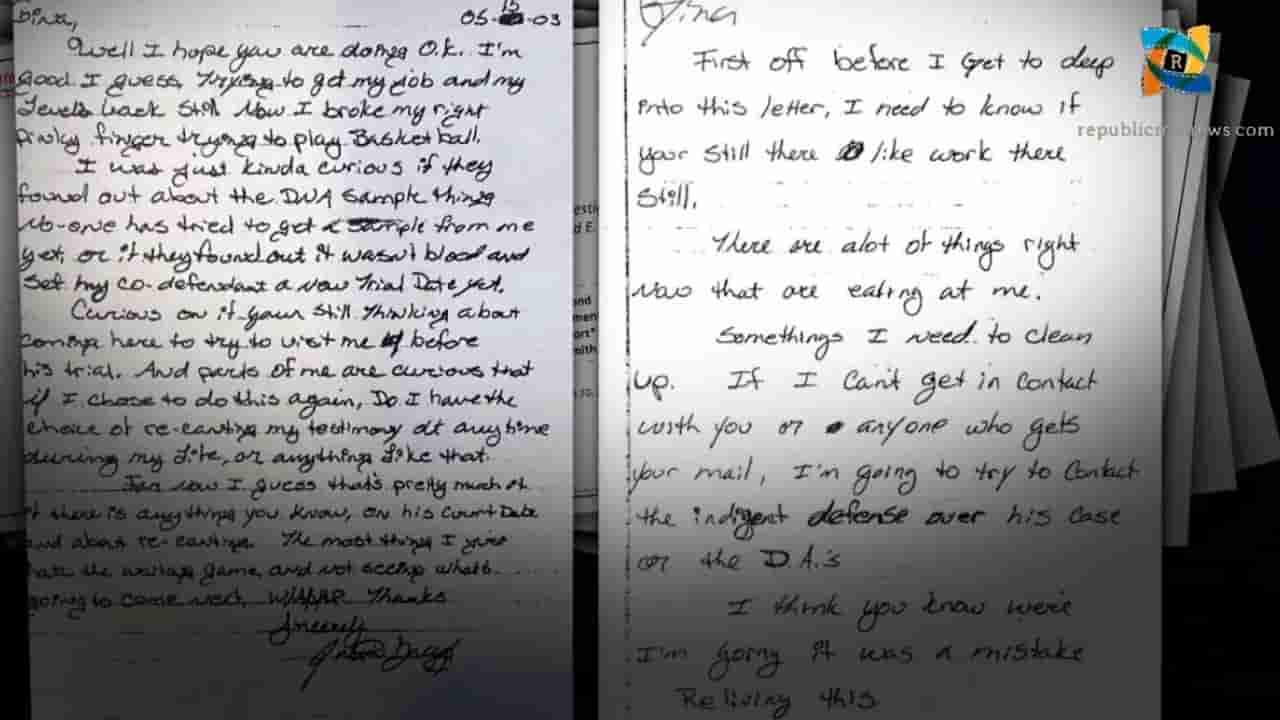 Gina,
05-15-03
Well I hope you are doing O.K. I'm
good I guess, Trying to get my job and my
Levels back still Now I broke my right
pinky finger trying to play Basketball.
I was just kinda curious if they
found out about the DNA sample things
No-one has tried to get a sample from me
yet, or if they found out it wasn't blood and
set my co-defendant a New Trial Date yet.
Curious on if your still thinking about
coming here to try to visit me before
his trial. And parts of me are curious that
if I chose to do this again, Do I have the
choice of re-canting my testimony at anytime
during my life, or anything like that.
For now I guess that's pretty much it
if there is anything you know, on his Court Date
and about re-canting. The most thing I
hate the waiting game, and not seeing what's
going to come next. W/A/R Thanks
Sincerely
Gina
First off before I Get to deep
into this letter, I need to know if
your still there like work there
still.
There are alot of things right
Now that are eating at me.
Somethings I need to clean
up. If I can't get in contact
with you or anyone who gets
your mail, I'm going to try to contact
the indigent defense over his case
or the D.A.'s
I think you know were
I'm going it was a mistake
Reliving this
R
republic
ws.com
esti
d E.
and
men
ort"
mith